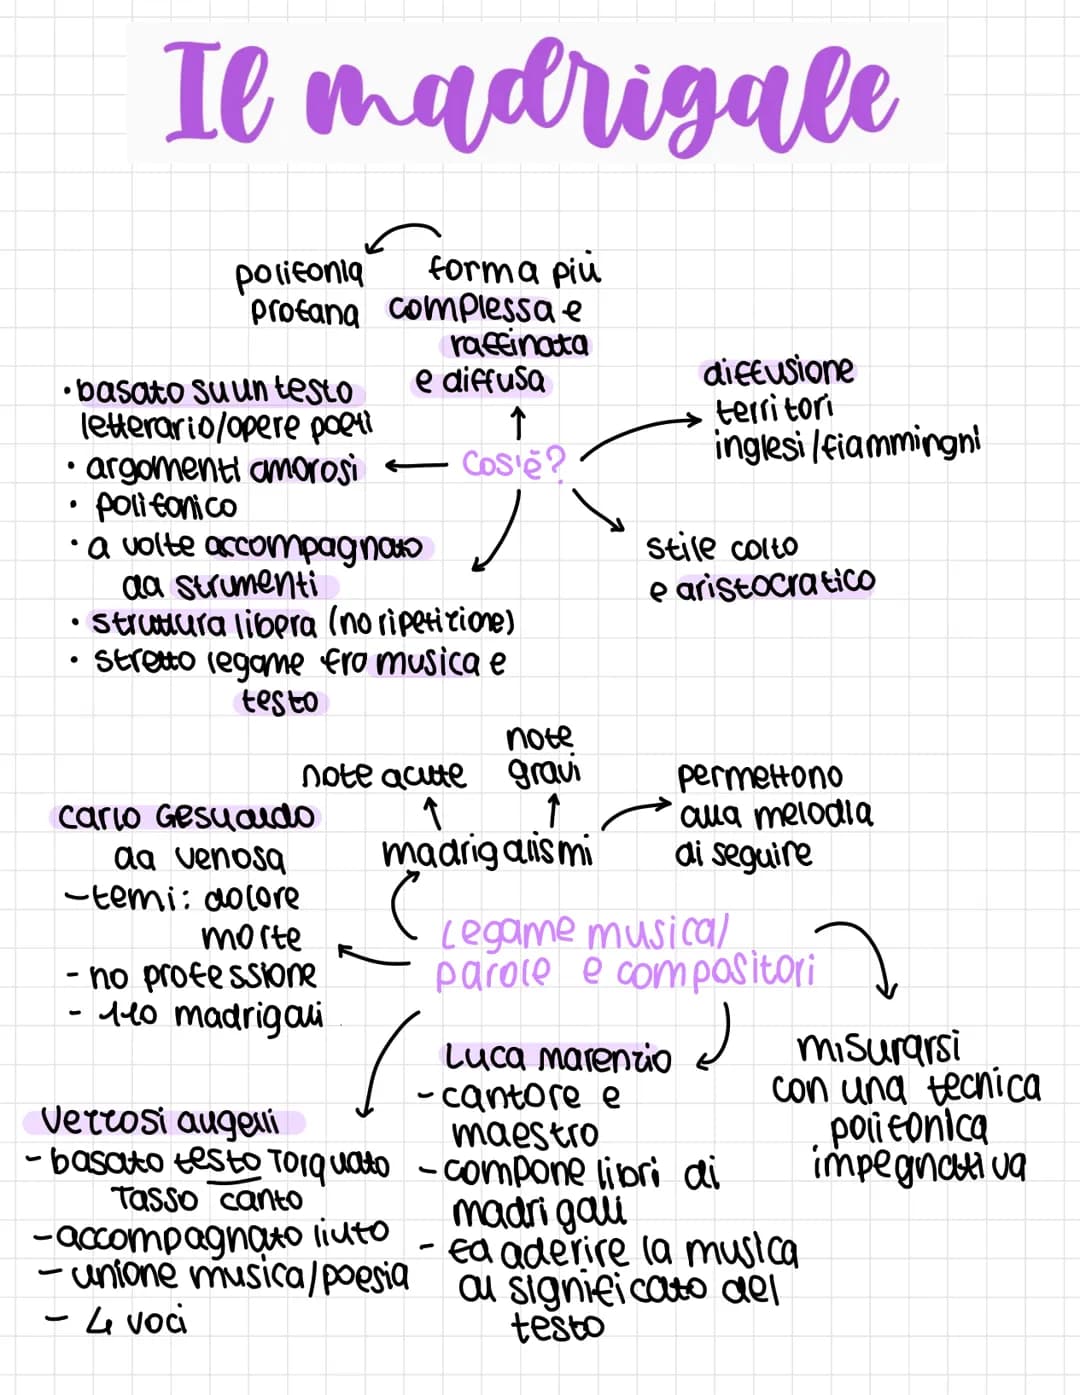 Il madrigale
polifonia
profana
forma più
complessa e
raffinata
e diffusa
diffusione
territori
inglesi/fiamminghi
Cos'è?
• basato su un testo
letterario/opere poeti
• argomenti amorosi
• polifonico
• a volte accompagnato
da strumenti
• struttura libera (no ripetizione)
• stretto legame fra musica e
testo
stile colto
e aristocratico
note acute
note
gravi
permettono
alla melodia
di seguire
madrigalismi
Carlo Gesualdo
da venosa
-temi: dolore
morte
- no professione
- 110 madrigali
Legame musica/
parole e compositori
misurarsi
con una tecnica
polifonica
impegnativa
Luca marenzio
- cantore e
maestro
- compone libri di
madrigali
- fa aderire la musica
al significato del
testo
Vezzosi augelli
- basato testo Torquato
Tasso canto
- accompagnato liuto
- unione musica/poesia
- 4 voci